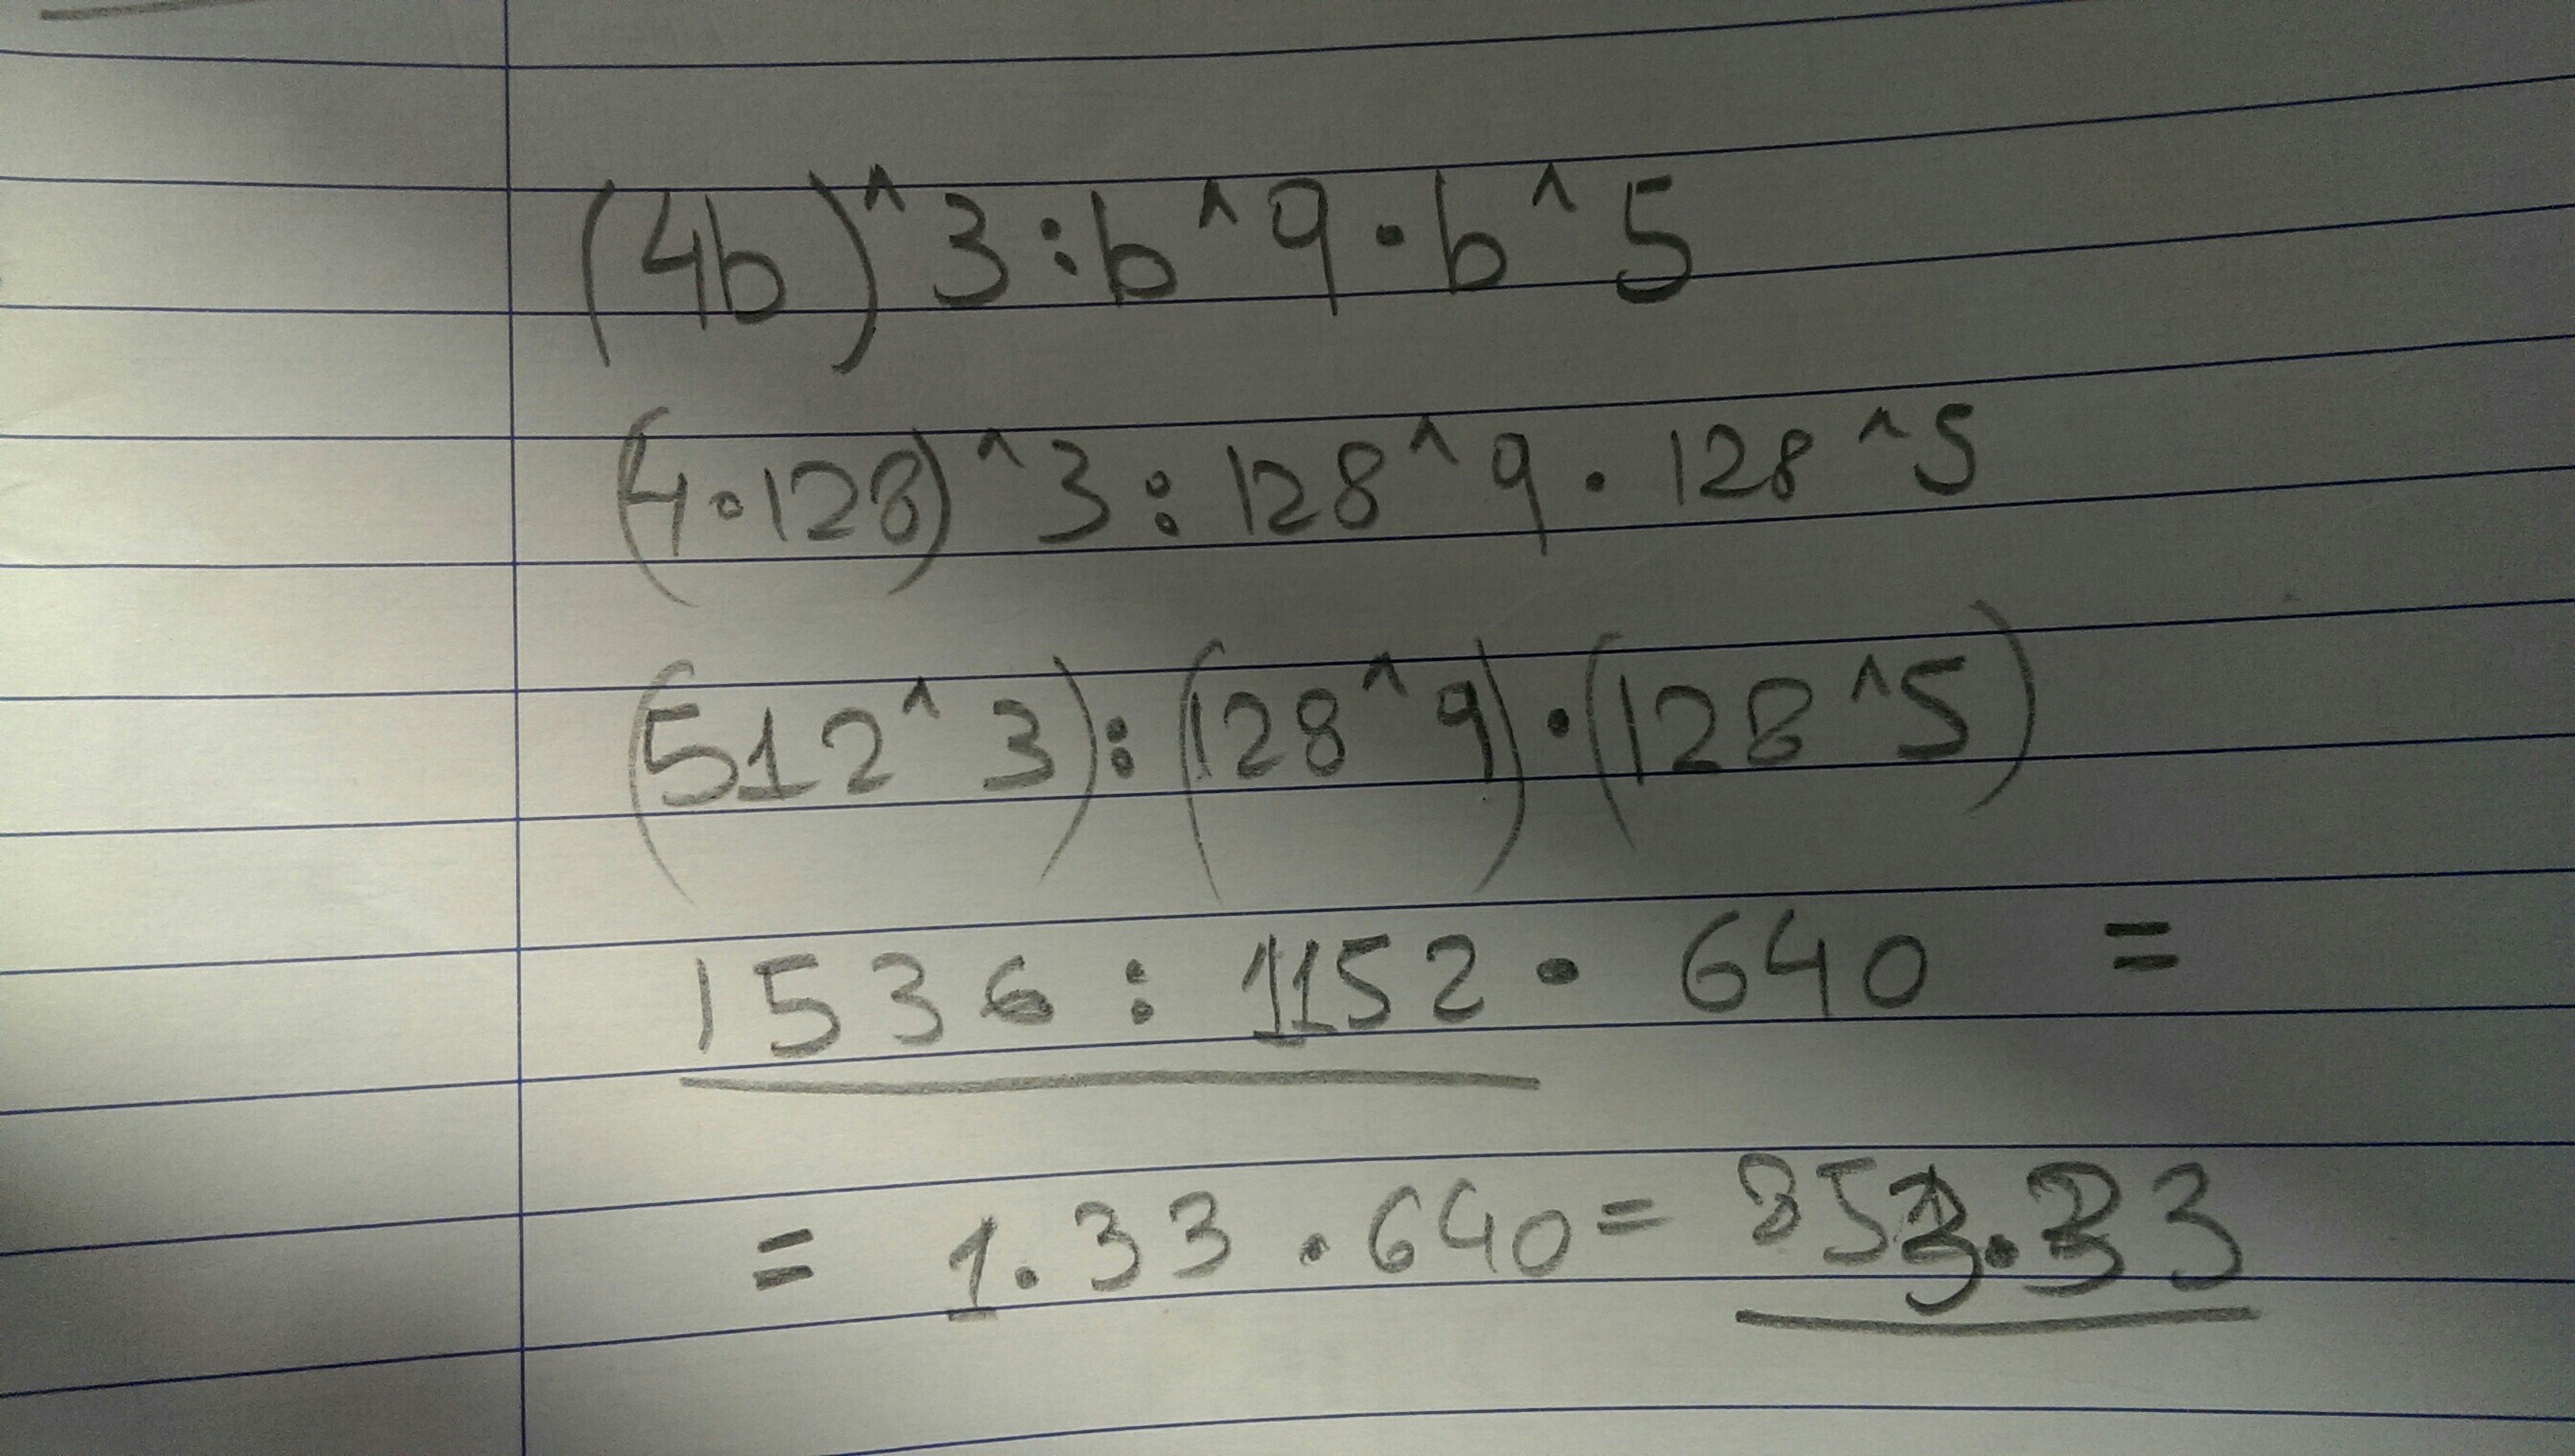 (4b)^3:b^9·b^5
(4·128)^3:128^9·128^5
(512^3):(128^9)·(128^5)
1536:1152·640=
=1.33·640=853.33